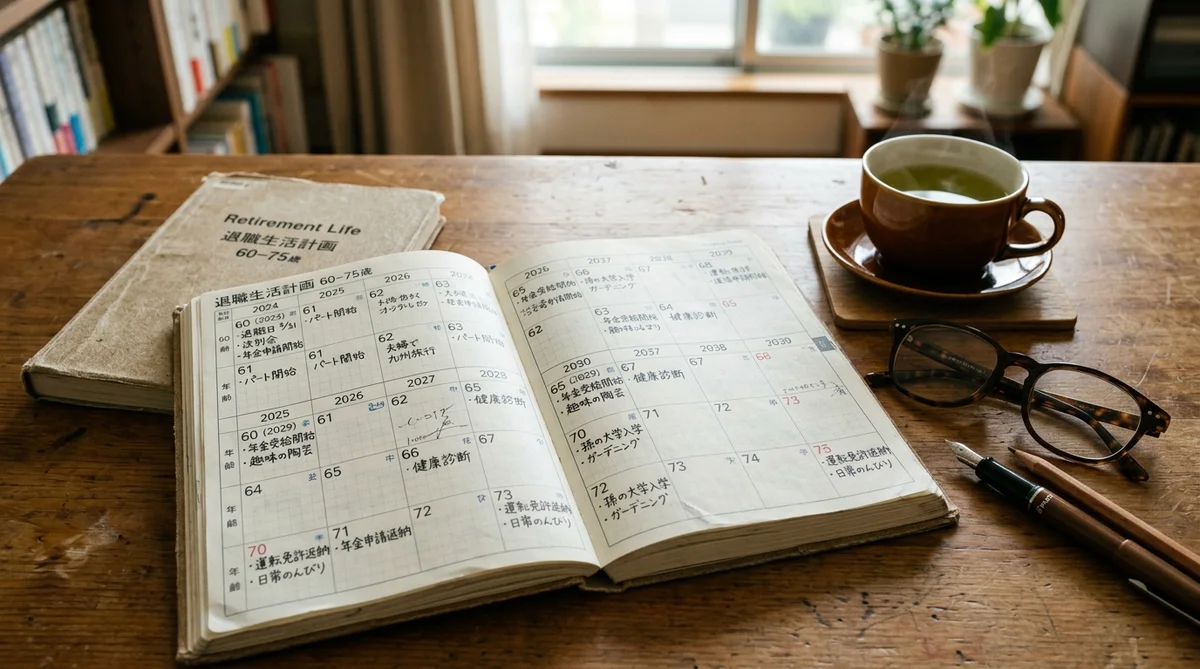 Retirement Life
退職生活計画
60-75歳
退職生活計画 60-75歳
2024
2025
2026
60 (2023)
・退職日 3/31
・送別会
・年金申請開始
61
・パート開始
62
63
61
・パート開始
61
・パート開始
62
夫婦で
九州旅行
63
・パート開始
2025
2026
2027
2028
60 (2029)
・年金受給開始
・趣味の陶芸
61
62
65
・健康診断
64
65
66
・健康診断
67
70
・運転免許返納
・日常のんびり
71
・年金申請返納
72
73
・運転免許返納
・日常のんびり
2026
2037
2038
2039
65
66
・孫の大学入学
ガーデニング
67
68
62
63
・年金受給開始
64
健康診断
65
2030
2037
2038
2039
65 (2029)
・年金受給開始
・趣味の陶芸
67
・健康診断
67
68
70
・孫の大学入学
・ガーデニング
71
72
73
72
・孫の大学入学
・ガーデニング
73
74
75
・運転免許返納
・日常のんびり